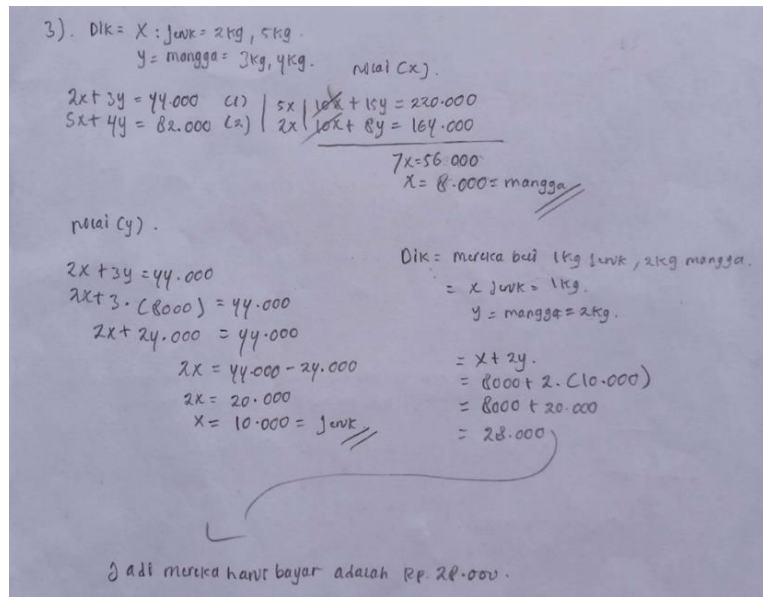 3). Dik = x : jeruk = 2kg, 5kg.
y = mangga = 3kg, 4kg.
nilai (x).
2x + 3y = 44.000 (1) | 5x | 10x + 15y = 220.000
5x + 4y = 82.000 (2) | 2x | 10x + 8y = 164.000
7x = 56.000
x = 8.000 = mangga
nilai (y).
2x + 3y = 44.000
2x + 3. (8000) = 44.000
2x + 24.000 = 44.000
2x = 44.000 - 24.000
2x = 20.000
x = 10.000 = jeruk
Dik = mereka beli 1kg jeruk, 2kg mangga.
= x jeruk = 1kg.
y = mangga = 2kg.
= x + 2y.
= 8000 + 2. (10.000)
= 8000 + 20.000
= 28.000
Jadi mereka harus bayar adalah Rp. 28.000.